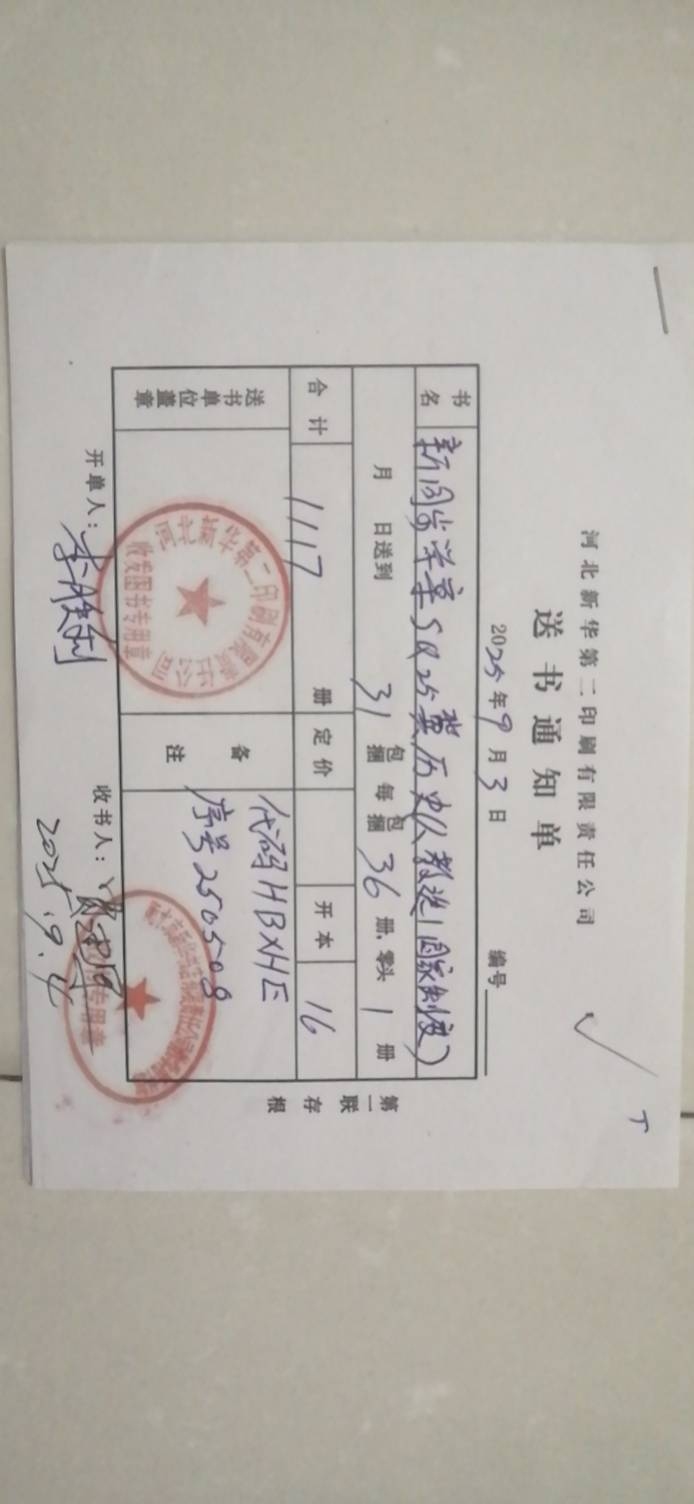 河北新华第二印刷有限责任公司
送书通知单
2025年9月3日 编号
书名 新同步学案SQ25冀历史人教选1(国家制度)
月 日送到 31 包捆 每包捆 36 册、零头 1 册
合计 1117 册 定价 开本 16
送书单位盖章
河北新华第二印刷有限责任公司
收发图书专用章
备注 代码HBXHE
序号2505-08
开单人： 收书人：
2025.9.4
专用章
第一联 存根
T